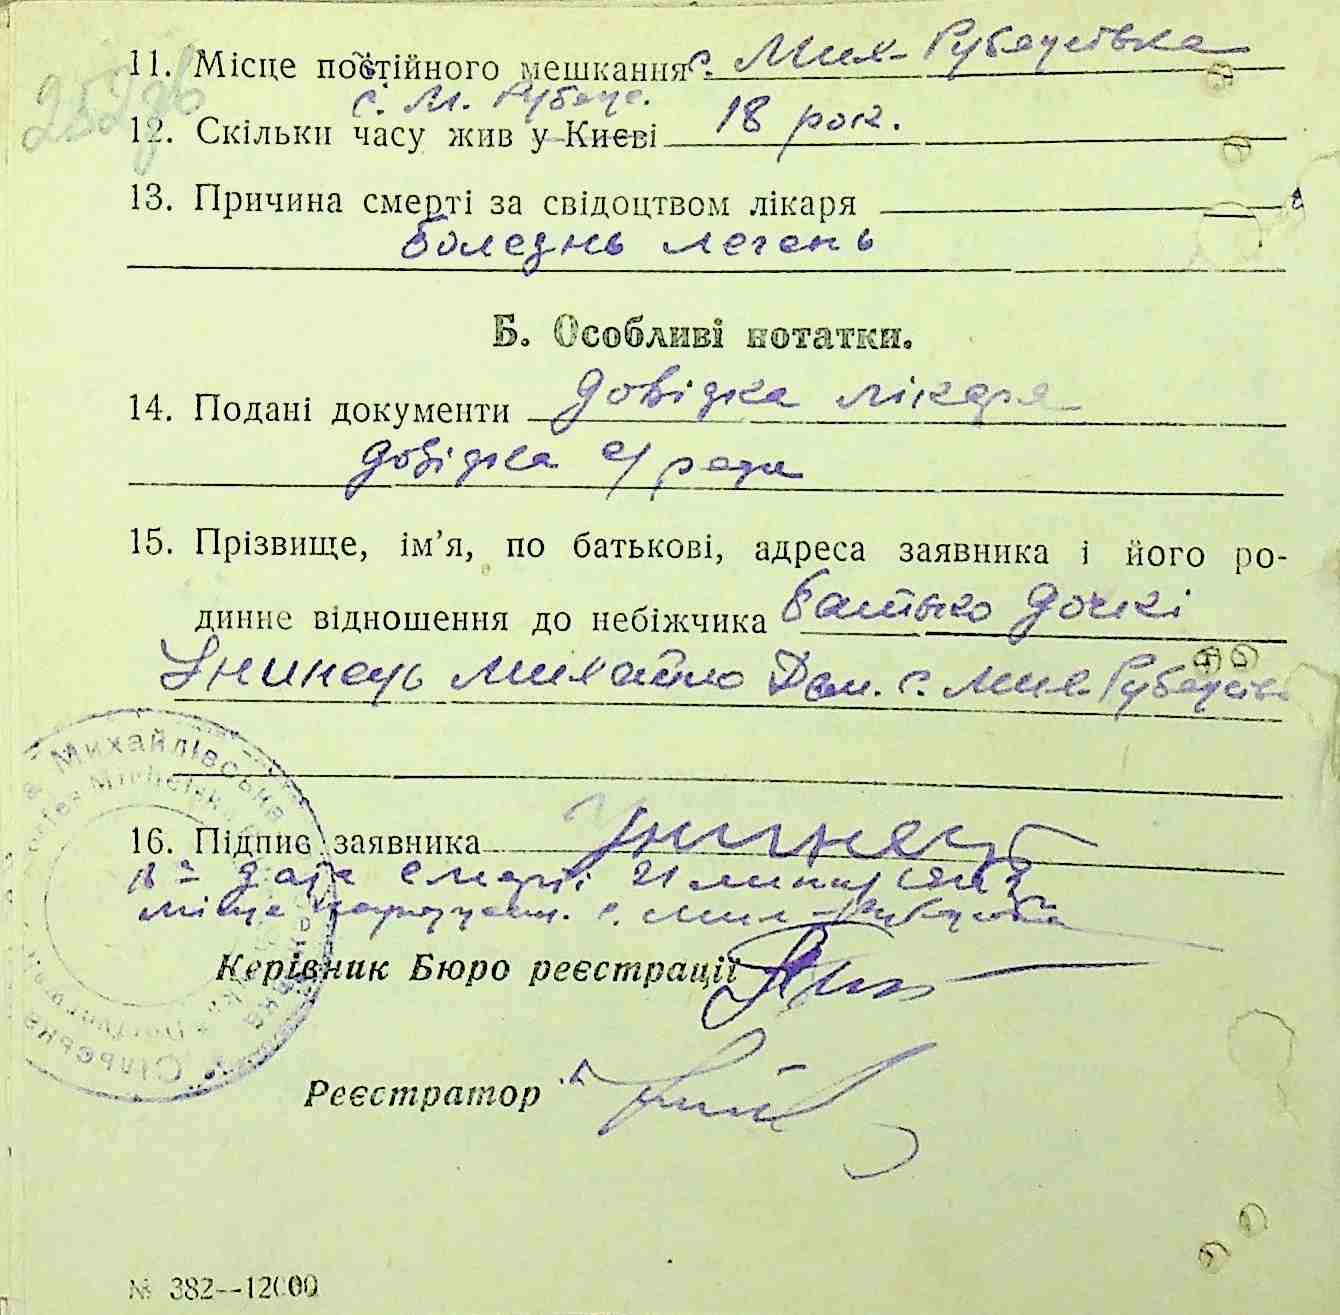 252 зв
11. Місце постійного мешкання с. Мих-Рубежівка
с. М. Рубеж.
12. Скільки часу жив у Києві 18 рок.
13. Причина смерті за свідоцтвом лікаря
болезнь легень
Б. Особливі нотатки.
14. Подані документи довідка лікаря
довідка с/ради
15. Прізвище, ім’я, по батькові, адреса заявника і його ро-
динне відношення до небіжчика батько дочкі
Михайло Дем. с. Мих-Рубежівка
Михайлівська
16. Підпис заявника
дата смерті
місце с. Мих-Рубежівка
Керівник Бюро реєстрації
Реєстратор
№ 382--12000